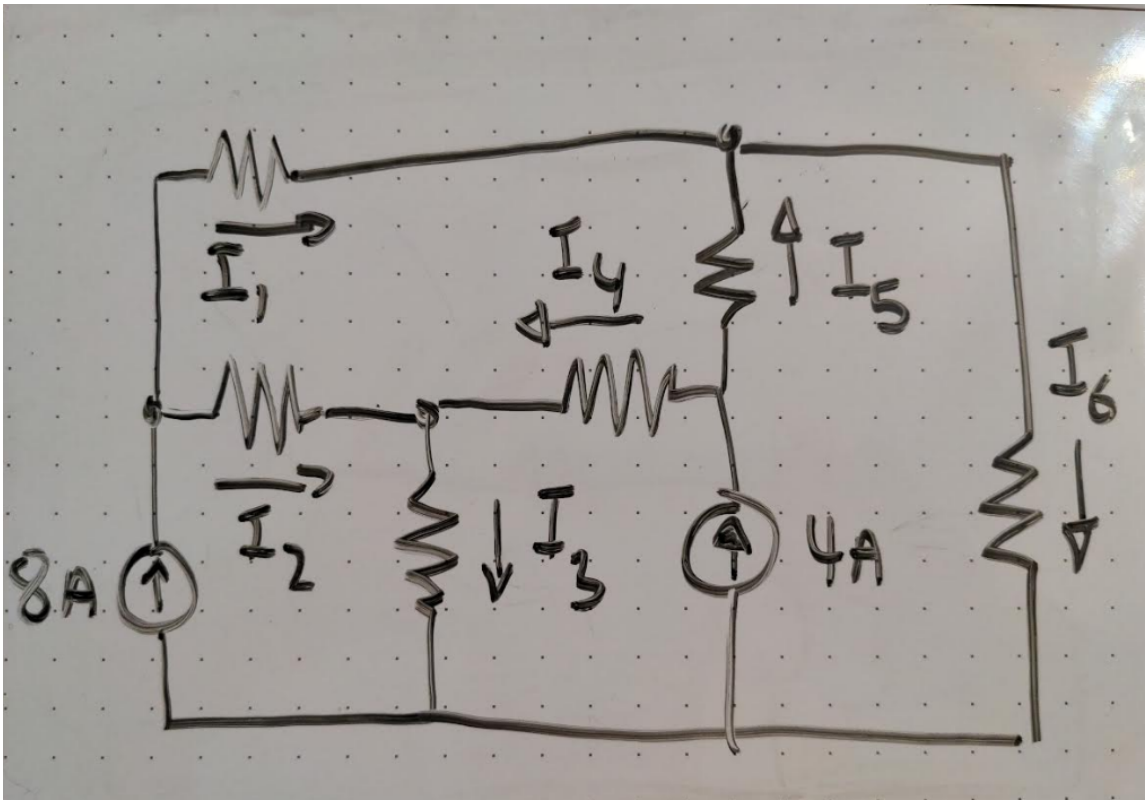 I₁
I₄
I₅
I₆
I₂
I₃
8A
4A